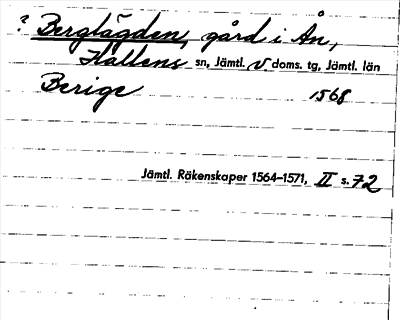 ? Berglägden, gård i Ån,
Hallens sn, Jämtl. v. doms. tg, Jämtl. län
Berige 1568
Jämtl. Räkenskaper 1564-1571, II s. 72